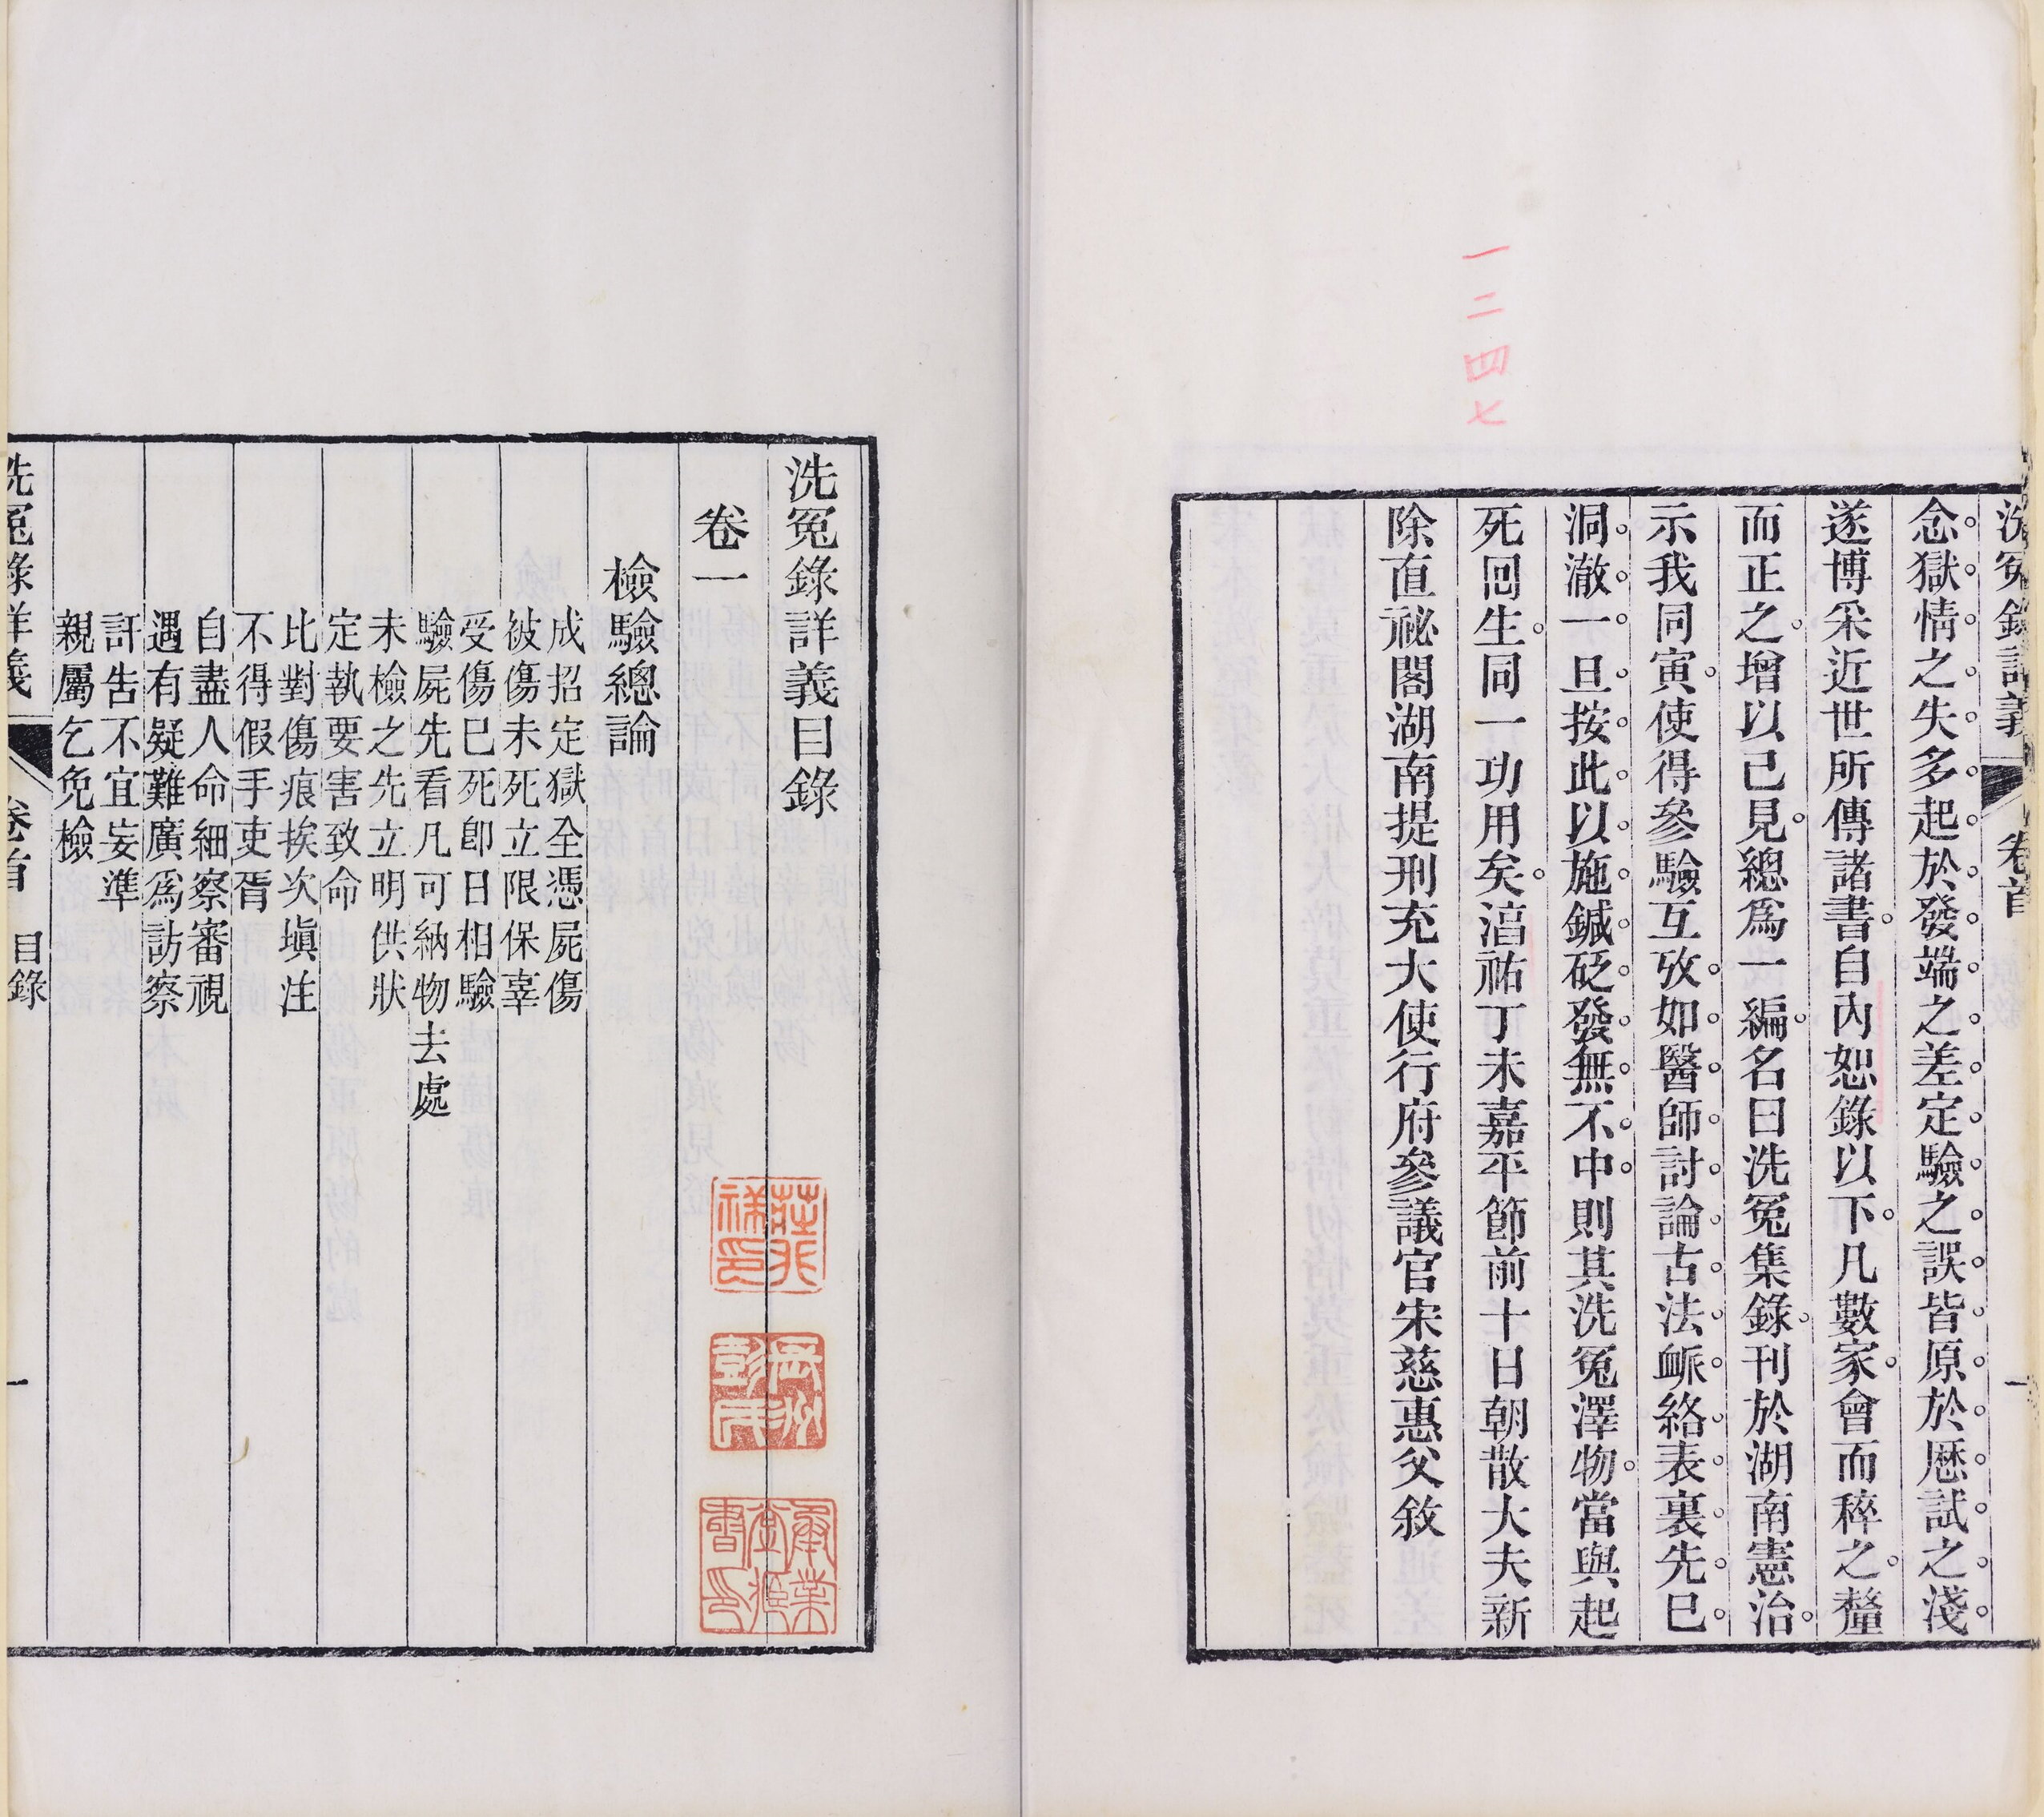 一二四七
洗冤錄詳義
卷首
一
念獄情之失多起於發端之差定驗之誤皆原於歷試之淺
遂博采近世所傳諸書自內恕錄以下凡數家會而稡之釐
而正之增以己見總爲一編名曰洗冤集錄刊於湖南憲治
示我同寅使得參驗互攷如醫師討論古法衇絡表裏先已
洞澈一旦按此以施鍼砭發無不中則其洗冤澤物當與起
死回生同一功用矣湻祐丁未嘉平節前十日朝散大夫新
除直祕閣湖南提刑充大使行府參議官宋慈惠父敘
洗冤錄詳義目錄
卷一
檢驗總論
成招定獄全憑屍傷
彼傷未死立限保辜
受傷已死卽日相驗
驗屍先看凡可納物去處
未檢之先立明供狀
定執要害致命
比對傷痕挨次塡注
不得假手吏胥
自盡人命細察審視
遇有疑難廣爲訪察
訐告不宜妄準
親屬乞免檢
洗冤錄詳義
卷首
目錄
一